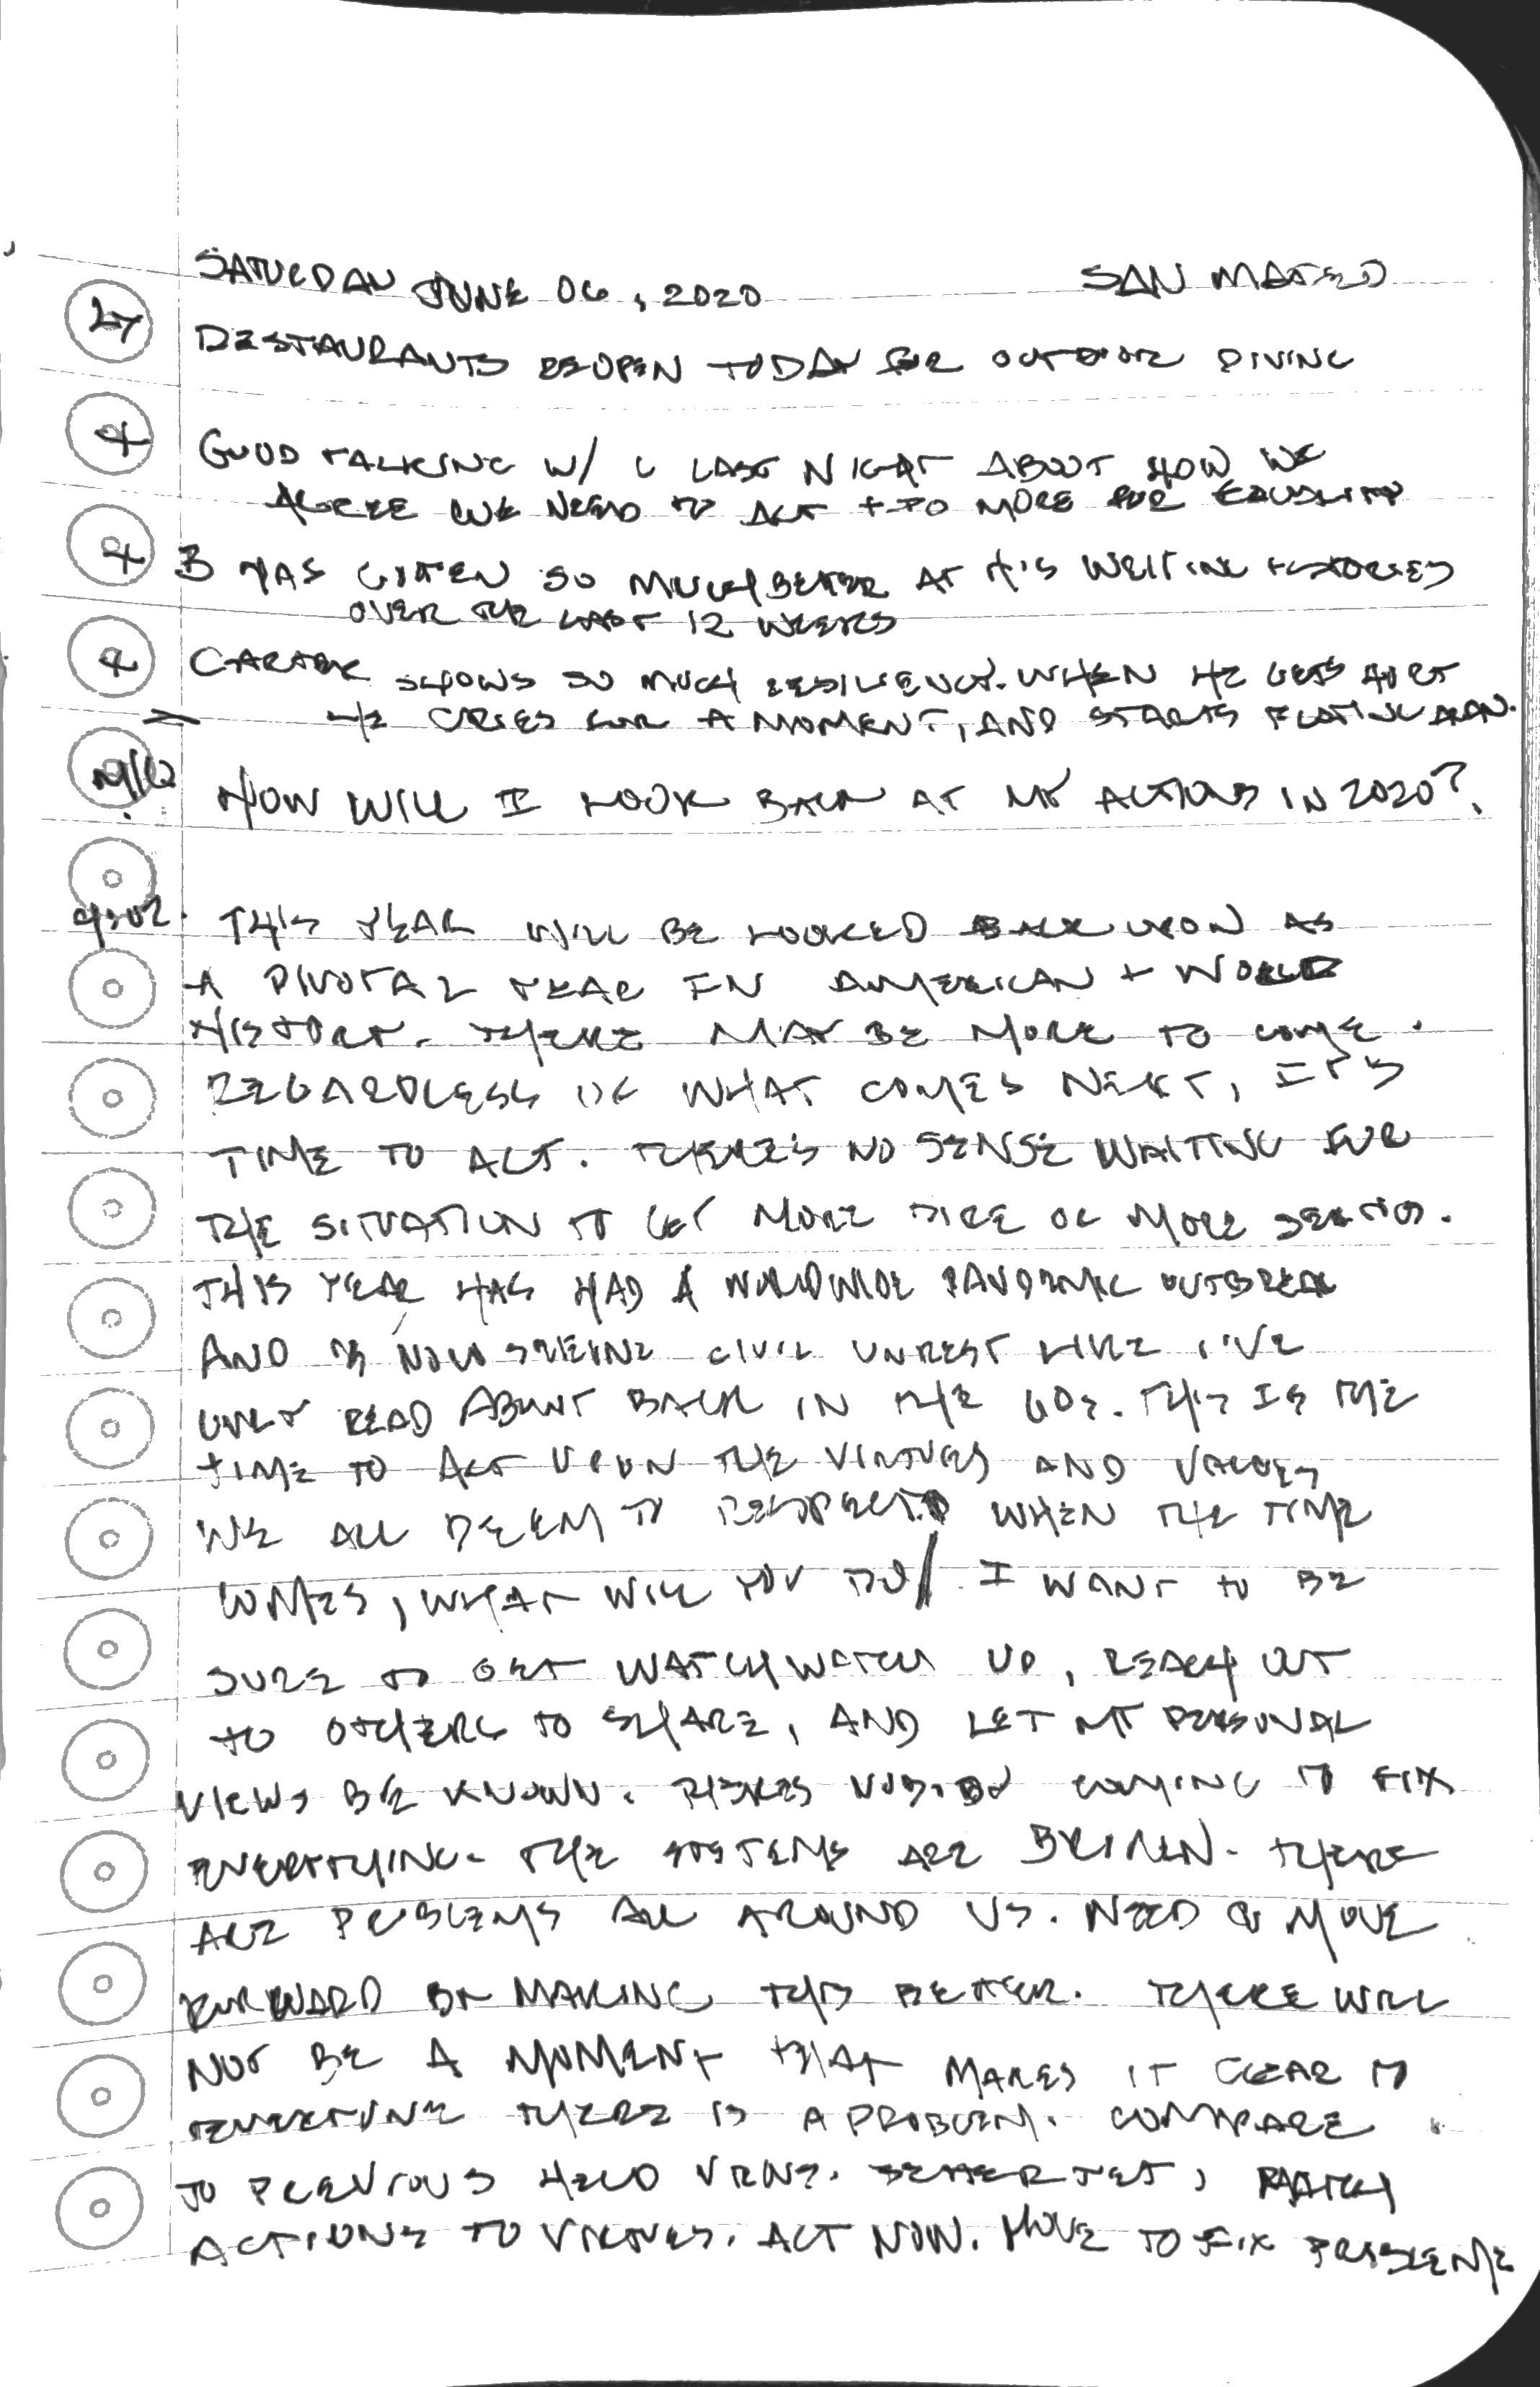 SATURDAY JUNE 06, 2020 SAN MATEO
RESTAURANTS REOPEN TODAY FOR OUTDOOR DINING
GOOD TALKING W/ L LAST NIGHT ABOUT HOW WE
AGREE WE NEED TO ACT + DO MORE FOR EQUALITY
B HAS GOTTEN SO MUCH BETTER AT HIS WRITING + STORIES
OVER THE LAST 12 WEEKS
CARTER SHOWS SO MUCH RESILIENCY. WHEN HE GETS HURT
HE CRIES FOR A MOMENT, AND STARTS PLAYING AGAIN.
HOW WILL I LOOK BACK AT MY ACTIONS IN 2020?
9:02. THIS YEAR WILL BE LOOKED BACK UPON AS
A PIVOTAL YEAR IN AMERICAN + WORLD
HISTORY. THERE MAY BE MORE TO COME.
REGARDLESS OF WHAT COMES NEXT, IT'S
TIME TO ACT. THERE'S NO SENSE WAITING FOR
THE SITUATION TO GET MORE DIRE OR MORE SERIOUS.
THIS YEAR HAS HAD A WORLDWIDE PANDEMIC OUTBREAK
AND IS NOW SEEING CIVIL UNREST LIKE I'VE
ONLY READ ABOUT BACK IN THE 60s. THIS IS THE
TIME TO ACT UPON THE VIRTUES AND VALUES
WE ALL DEEM TO RESPECT. WHEN THE TIME
COMES, WHAT WILL YOU DO? I WANT TO BE
SURE TO GET WATCHWATCH UP, REACH OUT
TO OTHERS TO SHARE, AND LET MY PERSONAL
VIEWS BE KNOWN. THERE'S NOBODY COMING TO FIX
EVERYTHING. THE SYSTEMS ARE BROKEN. THERE
ARE PROBLEMS ALL AROUND US. NEED TO MOVE
FORWARD BY MAKING THIS BETTER. THERE WILL
NOT BE A MOMENT THAT MAKES IT CLEAR TO
EVERYONE THERE IS A PROBLEM. COMPARE
TO PREVIOUS HELD VIEWS. BETTER YET, MATCH
ACTIONS TO VIRTUES. ACT NOW. MOVE TO FIX PROBLEMS